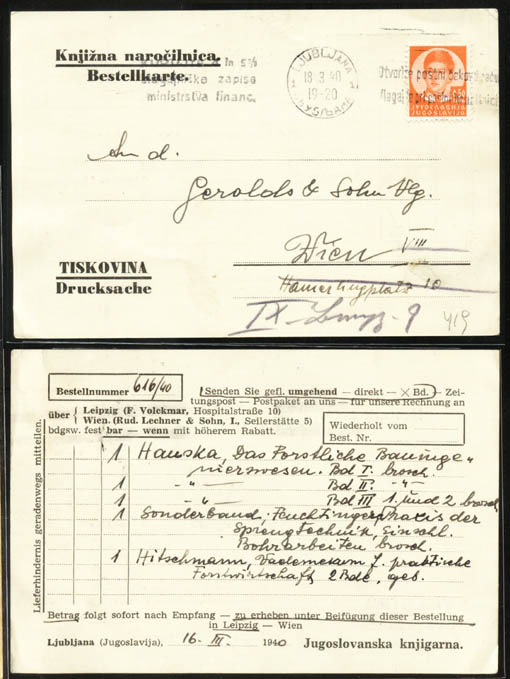 Knjižna naročilnica.
Bestellkarte.
in 5%
zapise
ministrstva financ.
LJUBLJANA
18.3.40
19-20
Otvorite poštni čekovni
ЈУГОСЛАВИЈА
JUGOSLAVIJA
An d.
Gerolds & Sohn Vlg.
Wien VIII
TISKOVINA
Drucksache
Hamerlingplatz 10
IX.
419
Bestellnummer 616/40
Senden Sie gefl. umgehend — direkt — × Bd. — Zei-
tungspost — Postpaket an uns — für unsere Rechnung an
über Leipzig (F. Volckmar, Hospitalstraße 10)
Wien. (Rud. Lechner & Sohn, I., Seilerstätte 5)
bdgsw. fest bar — wenn mit höherem Rabatt.
Wiederholt vom
Best. Nr.
Lieferhindernis geradenwegs mitteilen.
1 Hauska, Das Forstliche Bauinge-
nierwesen. Bd I. brosch.
1 -"- Bd II. -"-
1 -"- Bd III 1. und 2 brosch
1 Sonderband: Feuchtingers Praxis der
Sprengtechnik, Einschl.
Bohrarbeiten brosch.
1 Hitschmann, Vademekum f. praktische
Forstwirtschaft 2 Bde. geb.
Betrag folgt sofort nach Empfang — zu erheben unter Beifügung dieser Bestellung
in Leipzig — Wien
Ljubljana (Jugoslavija), 16. III. 1940 Jugoslovanska knjigarna.